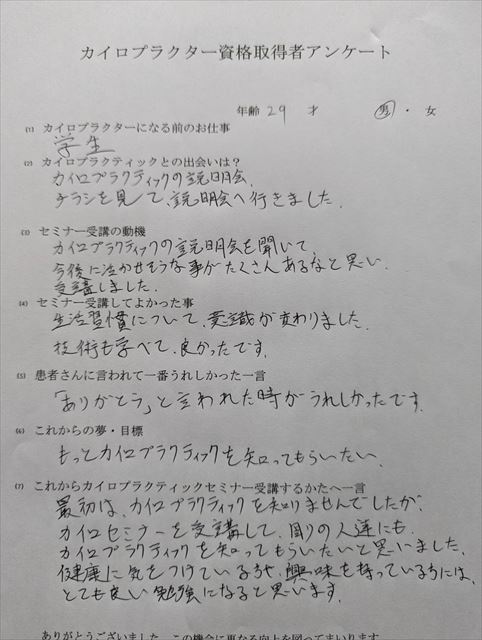 カイロプラクター資格取得者アンケート
年齢 29 才 男・女
(1) カイロプラクターになる前のお仕事
学生
(2) カイロプラクティックとの出会いは?
カイロプラクティックの説明会
チラシを見て、説明会へ行きました。
(3) セミナー受講の動機
カイロプラクティックの説明会を聞いて、
今後に活かせそうな事がたくさんあるなと思い、
受講しました。
(4) セミナー受講してよかった事
生活習慣について、意識が変わりました。
技術も学べて、良かったです。
(5) 患者さんに言われて一番うれしかった一言
「ありがとう」と言われた時がうれしかったです。
(6) これからの夢・目標
もっとカイロプラクティックを知ってもらいたい。
(7) これからカイロプラクティックセミナー受講するかたへ一言
最初は、カイロプラクティックを知りませんでしたが、
カイロセミナーを受講して、周りの人達にも、
カイロプラクティックを知ってもらいたいと思いました。
健康に気をつけている方や、興味を持っている方には、
とても良い勉強になると思います。
ありがとうございました。この機会に更なる向上を図ってまいります。